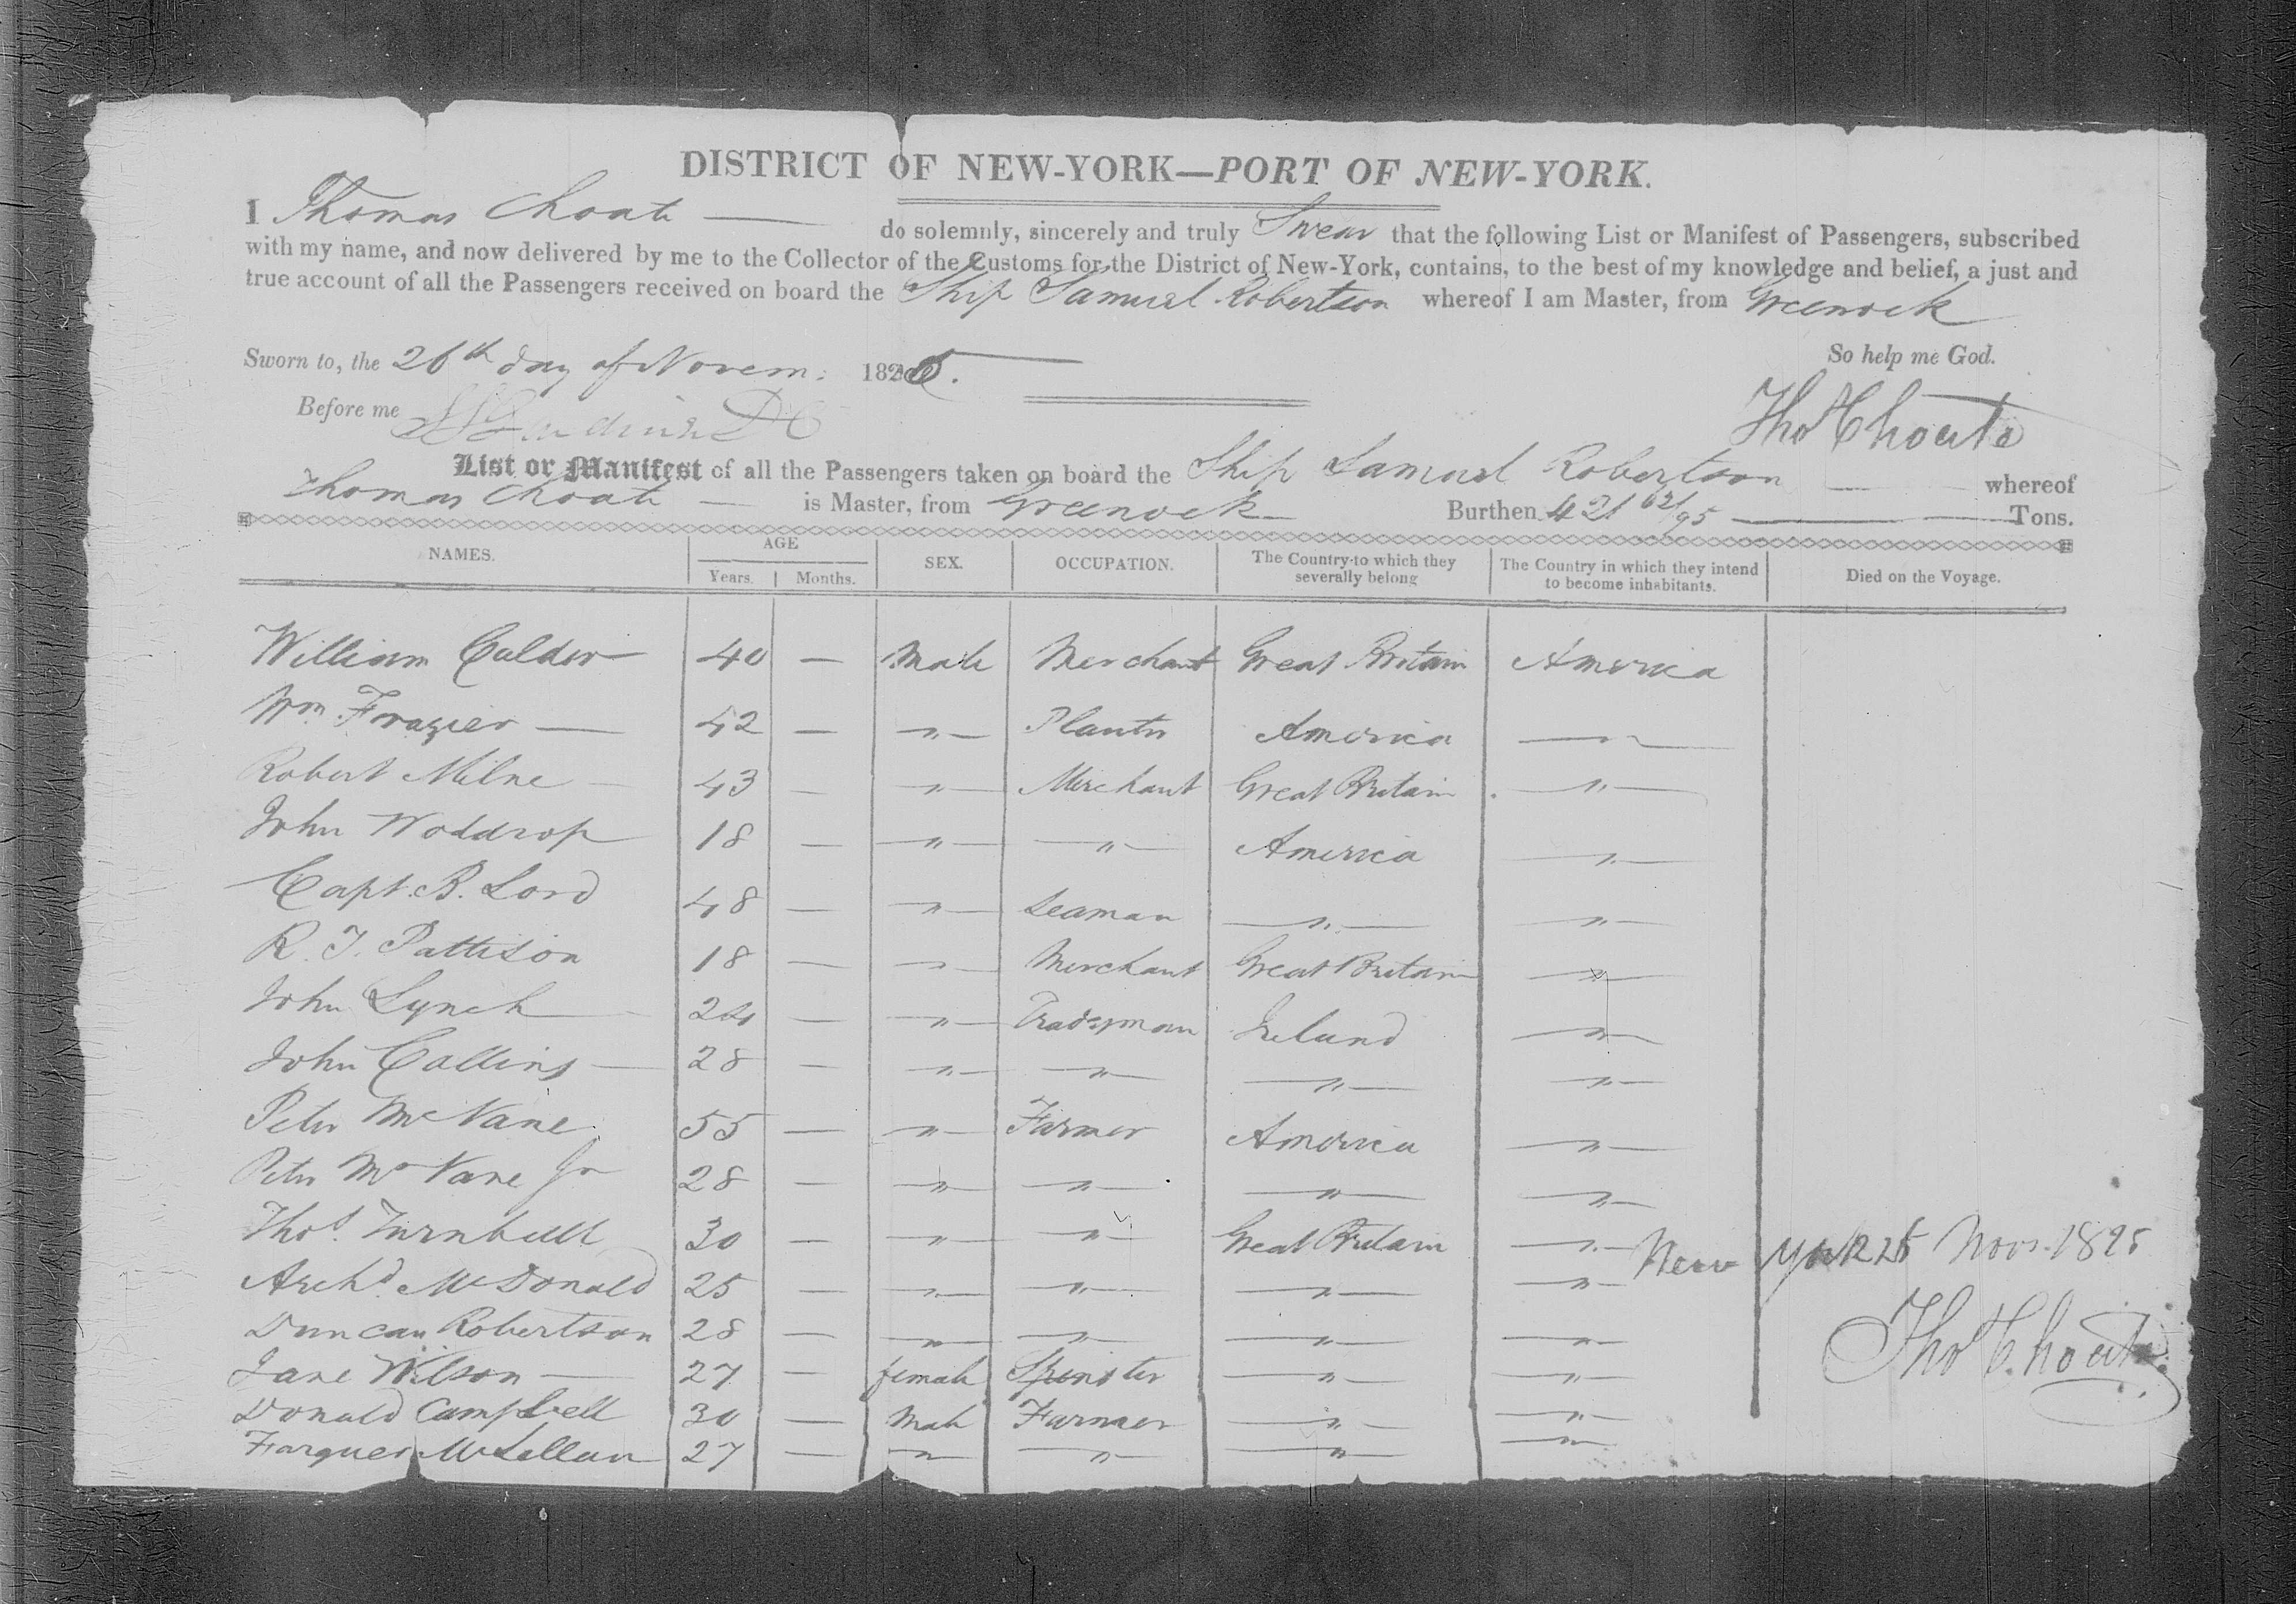 DISTRICT OF NEW-YORK—PORT OF NEW-YORK.
I Thomas Choate do solemnly, sincerely and truly Swear that the following List or Manifest of Passengers, subscribed
with my name, and now delivered by me to the Collector of the Customs for the District of New-York, contains, to the best of my knowledge and belief, a just and
true account of all the Passengers received on board the Ship Samuel Robertson whereof I am Master, from Greenock
So help me God.
Sworn to, the 26th day of Novem: 1825.
Before me
Thos Choate
List or Manifest of all the Passengers taken on board the Ship Samuel Robertson whereof
Thomas Choate is Master, from Greenock Burthen 421 62/95 Tons.
NAMES. AGE Years. Months. SEX. OCCUPATION. The Country to which they severally belong The Country in which they intend to become inhabitants. Died on the Voyage.
William Calder 40 — Male Merchant Great Britain America
Wm. Frazier — 42 — " Planter America "
Robert Milne 43 — " Merchant Great Britain "
John Woddrop 18 — " " America "
Capt. B. Lord 48 — " Seaman " "
R. T. Pattison 18 — " Merchant Great Britain "
John Lynch 24 — " Tradesman Ireland "
John Collins 28 — " " " "
Peter McVane 55 — " Farmer America "
Peter McVane Jr 28 — " " " "
Thos. Turnbull 30 — " " Great Britain "
Archd. McDonald 25 — " " " "
Duncan Robertson 28 — " " " "
Jane Wilson — 27 — female Spinster " "
Donald Campbell 30 — Male Farmer " "
Farquer McLellan 27 — " " " "
New York 25 Novr. 1825
Thos Choate